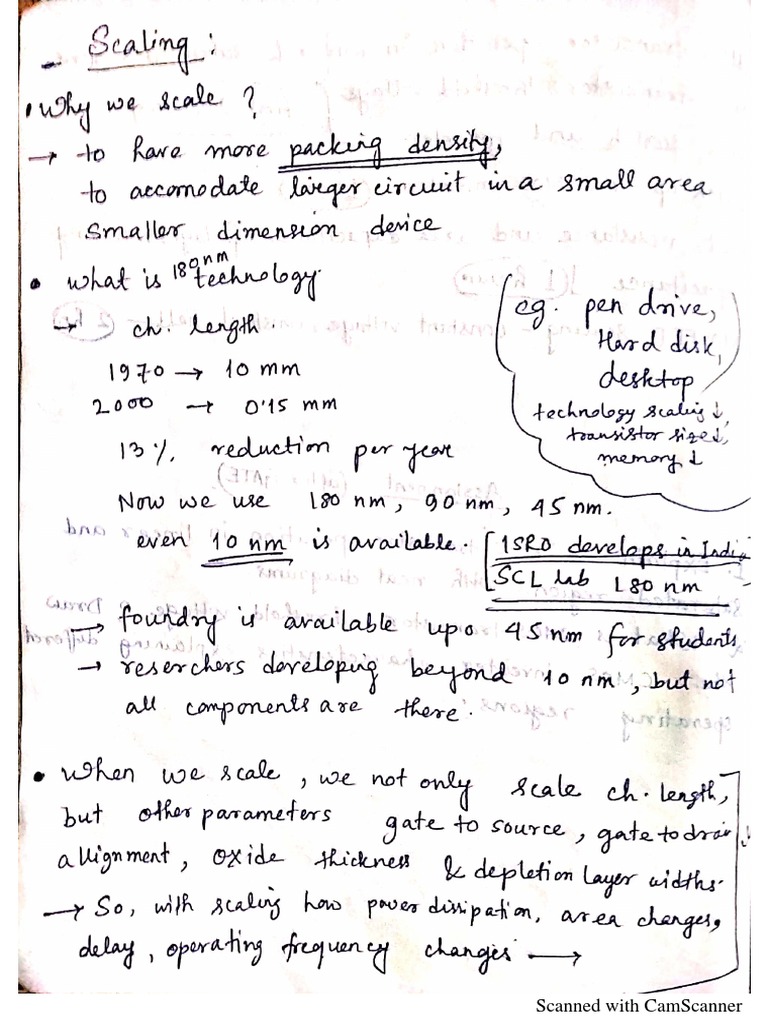 - Scaling:
• Why we scale ?
→ to have more packing density,
to accomodate larger circuit in a small area
smaller dimension device
• what is 180nm technology.
→ ch. length.
1970 → 10 mm
2000 → 0.15 mm
13% reduction per year
eg. pen drive,
Hard disk,
desktop
technology scaling ↓,
transistor size↓,
memory ↓
Now we use 180 nm, 90 nm, 45 nm.
even 10 nm is available. [ISRO develops in India
SCL lab 180 nm
→ foundry is available upo 45nm for students
→ reserchers developing beyond 10 nm, but not
all components are there.
• When we scale, we not only scale ch. length,
but other parameters gate to source, gate to drain
allignment, oxide thickness & depletion layer widths.
→ So, with scaling how power dissipation, area changes,
delay, operating frequency changes →
Scanned with CamScanner